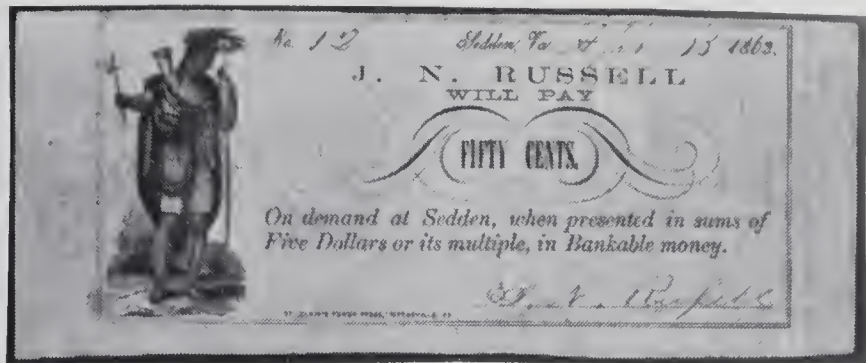 No. 12 Sedden, Va 15 1862.
J. N. RUSSELL
WILL PAY
FIFTY CENTS.
On demand at Sedden, when presented in sums of
Five Dollars or its multiple, in Bankable money.
J. N. Russell